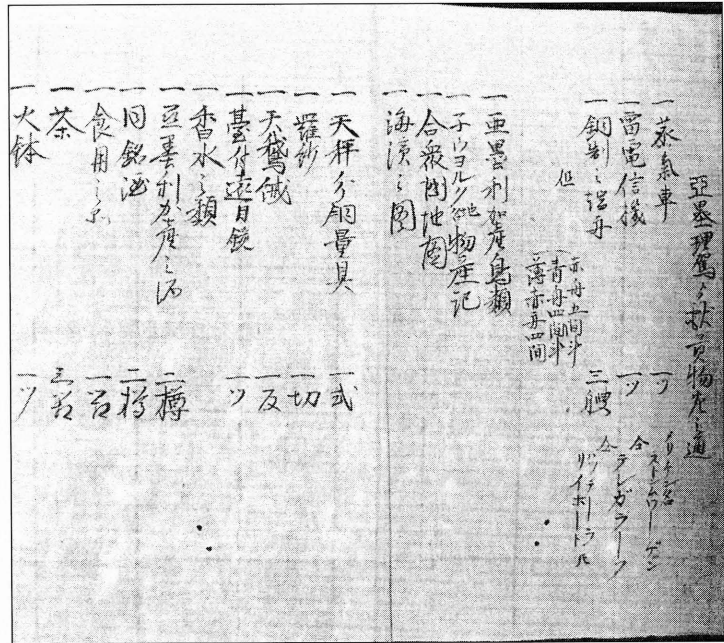 亞墨理駕ゟ献貢物左之通
一 蒸氣車 一ツ メリケン名 ストームワーゲン
一 雷電信機 一ツ 仝 テレガラーフ
一 銅制之端舟 三艘 仝
但 赤舟五間半
青舟四間半
薄赤舟四間
一 亜墨利加産鳥類
一 子ウヨルク地物産記
一 合衆国地図
一 海濱之图
一 天秤分銅量具 一式
一 羅紗 一切
一 天鵞絨 一反
一 臺付遠目鏡 一ツ
一 香水之類
一 亞墨利加産之酒 二樽
一 同銘酒 二樽
一 食用之
一 茶 三
一 火鉢 一ツ